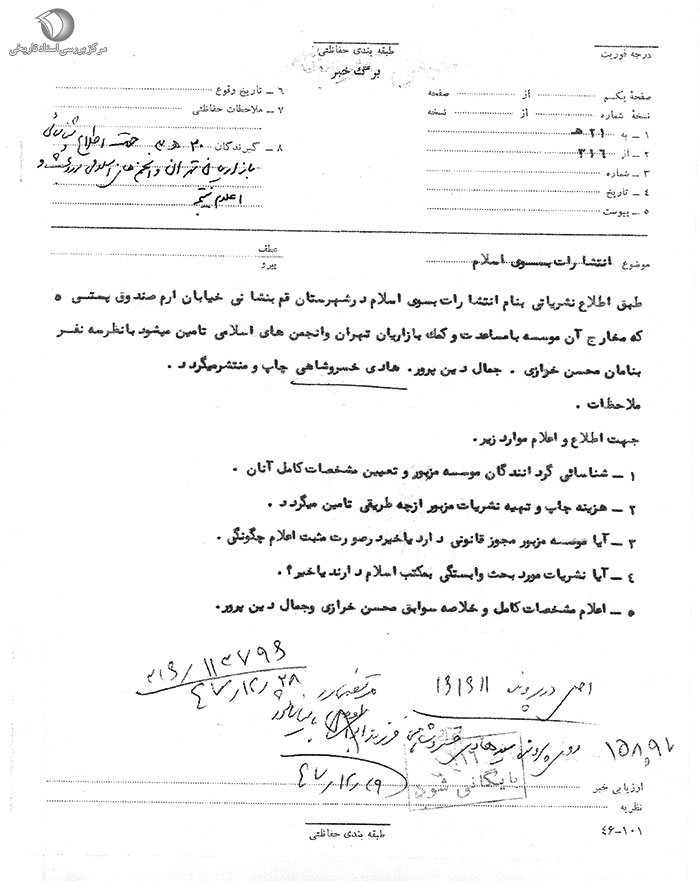 مرکز بررسی اسناد تاریخی
طبقه بندی حفاظتی
درجه فوریت
برگ خبر
صفحهٔ یکم از صفحه
نسخهٔ شماره از نسخه
۱ ــ به ۲۱ هـ
۲ ــ از ۳۱۶
۳ ــ شماره
۴ ــ تاریخ
۵ ــ پیوست
۶ ــ تاریخ وقوع
۷ ــ ملاحظات حفاظتی
۸ ــ گیرندگان ۳۰ هـ ۳. جهت اطلاع و شناسائی
بازاریان تهران و انجمن های اسلامی و
اعلام نتیجه
موضوع انتشارات بسوی اسلام
عطف
پیرو
طبق اطلاع نشریاتی بنام انتشارات بسوی اسلام در شهرستان قم بنشانی خیابان ارم صندوق پستی ۵
که مخارج آن موسسه با مساعدت و کمک بازاریان تهران وانجمن های اسلامی تامین میشود بانظر سه نفر
بنامان محسن خرازی . جمال دین پرور. هادی خسروشاهی چاپ و منتشر میگردد .
ملاحظات .
جهت اطلاع و اعلام موارد زیر.
۱ ــ شناسائی گردانندگان موسسه مزبور و تعیین مشخصات کامل آنان .
۲ ــ هزینه چاپ و تهیه نشریات مزبور ازچه طریقی تامین میگردد .
۳ ــ آیا موسسه مزبور مجوز قانونی دارد یاخیر در صورت مثبت اعلام چگونگی .
۴ ــ آیا نشریات مورد بحث وابستگی بمکتب اسلام دارند یاخیر؟ .
۵ ــ اعلام مشخصات کامل و خلاصه سوابق محسن خرازی وجمال دین پرور.
۳۱۶/۱۱۳۷۹۶
۴۷/۱۲/۲۸
اصل در پرونده ۱۶۱۶۱۱
روی پرونده سید هادی خسروشاهی فرزند
۱۵۸۹۲
۴۷/۱۲/۲۹
۳۱۶
بایگانی شود
ارزیابی خبر
نظریه
طبقه بندی حفاظتی
۴۶-۱۰۱